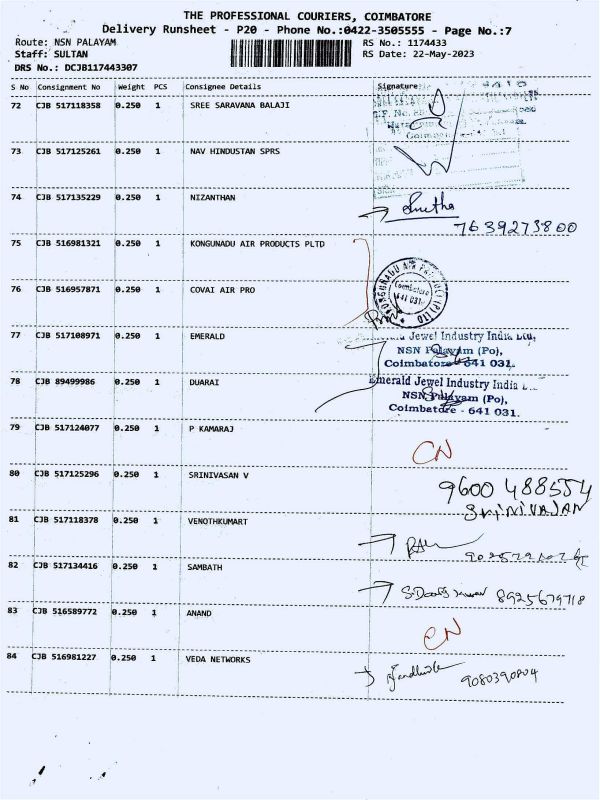 THE PROFESSIONAL COURIERS, COIMBATORE
Delivery Runsheet - P20 - Phone No.:0422-3505555 - Page No.:7
Route: NSN PALAYAM RS No.: 1174433
Staff: SULTAN RS Date: 22-May-2023
DRS No.: DCJB117443307
S No Consignment No Weight PCS Consignee Details Signature
72 CJB 517118358 0.250 1 SREE SARAVANA BALAJI
73 CJB 517125261 0.250 1 NAV HINDUSTAN SPRS
74 CJB 517135229 0.250 1 NIZANTHAN
7639273800
75 CJB 516981321 0.250 1 KONGUNADU AIR PRODUCTS PLTD
76 CJB 516957871 0.250 1 COVAI AIR PRO
Coimbatore
641 031
77 CJB 517108971 0.250 1 EMERALD
Jewel Industry India Ltd,
NSN Palayam (Po),
Coimbatore - 641 031.
78 CJB 89499986 0.250 1 DUARAI
Emerald Jewel Industry India
NSN Palayam (Po),
Coimbatore - 641 031.
79 CJB 517124077 0.250 1 P KAMARAJ
CN
80 CJB 517125296 0.250 1 SRINIVASAN V
9600488554
SriNiVASAN
81 CJB 517118378 0.250 1 VENOTHKUMART
82 CJB 517134416 0.250 1 SAMBATH
8925679718
83 CJB 516589772 0.250 1 ANAND
CN
84 CJB 516981227 0.250 1 VEDA NETWORKS
9080390804